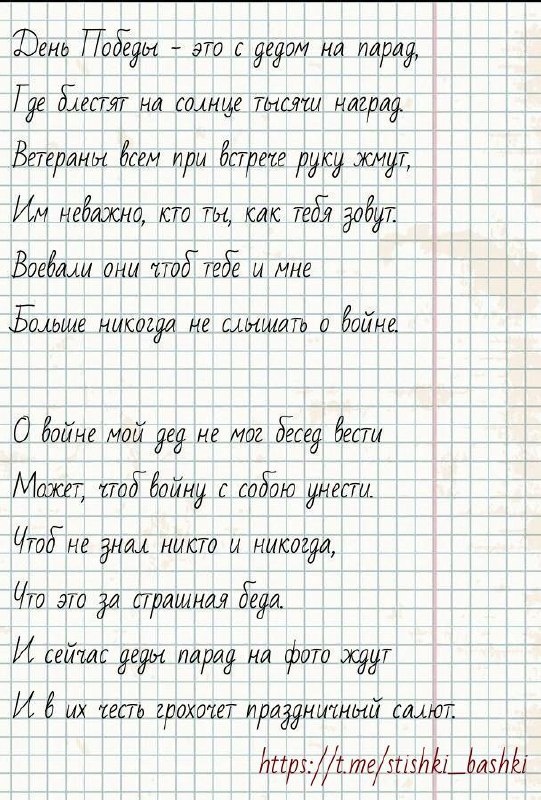 День Победы - это с дедом на парад,
Где блестят на солнце тысячи наград.
Ветераны всем при встрече руку жмут,
Им неважно, кто ты, как тебя зовут.
Воевали они чтоб тебе и мне
Больше никогда не слышать о войне.
О войне мой дед не мог бесед вести
Может, чтоб войну с собою унести.
Чтоб не знал никто и никогда,
Что это за страшная беда.
И сейчас деды парад на фото ждут
И в их честь грохочет праздничный салют.
https://t.me/stishki_bashki